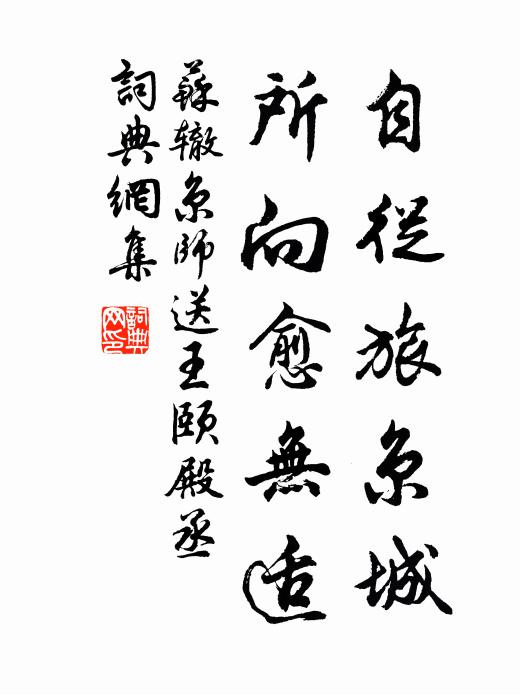 自從旅京城
所向愈無适
蘇辙京師送王頤殿丞
詞典網集
詞典
网印